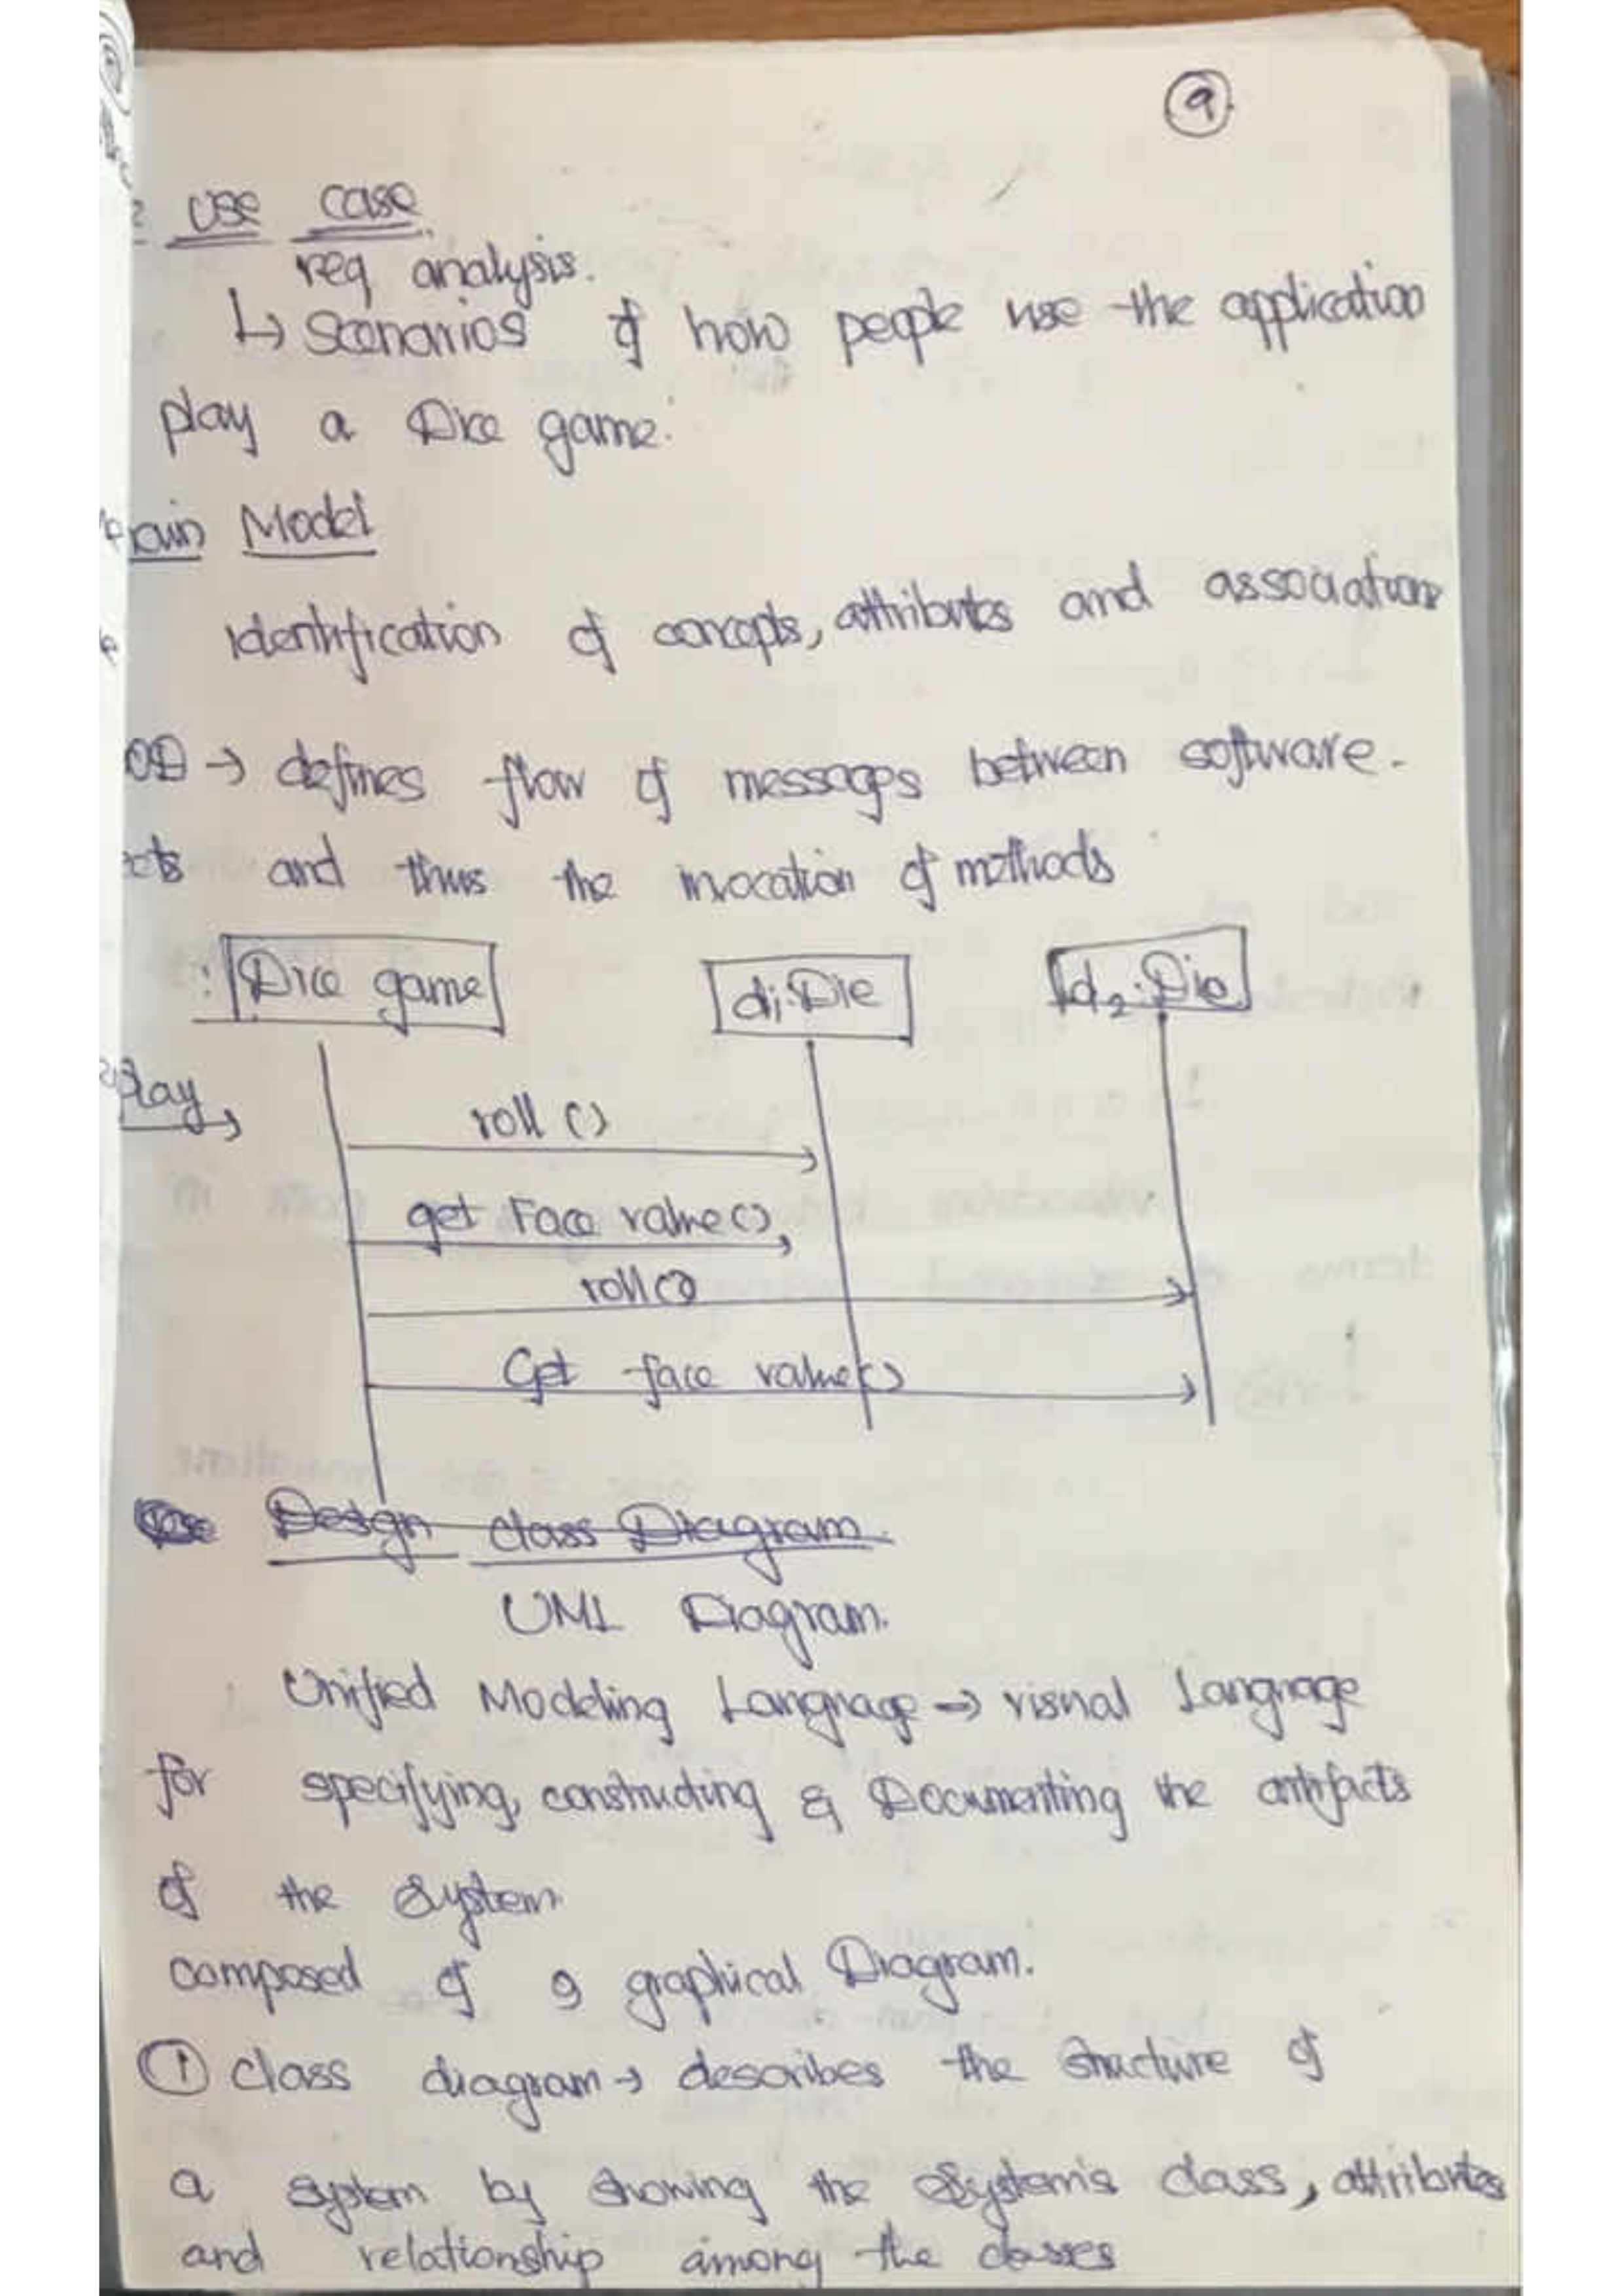 9
USE CASE
req analysis.
↳ Scenarios of how people use the application
play a Dice game.
ain Model
identification of concepts, attributes and associations
OD → defines flow of messages between software.
ects and thus the invocation of methods
: Dice game
d1:Die
d2:Die
play
roll ()
get Face value()
roll()
Get face value()
Design class Diagram.
UML Diagram.
Unified Modeling Language → visual Language
for specifying, constructing & Documenting the artifacts
of the system
composed of 9 graphical Diagram.
① class diagram → describes the structure of
a system by showing the system's class, attributes
and relationship among the classes